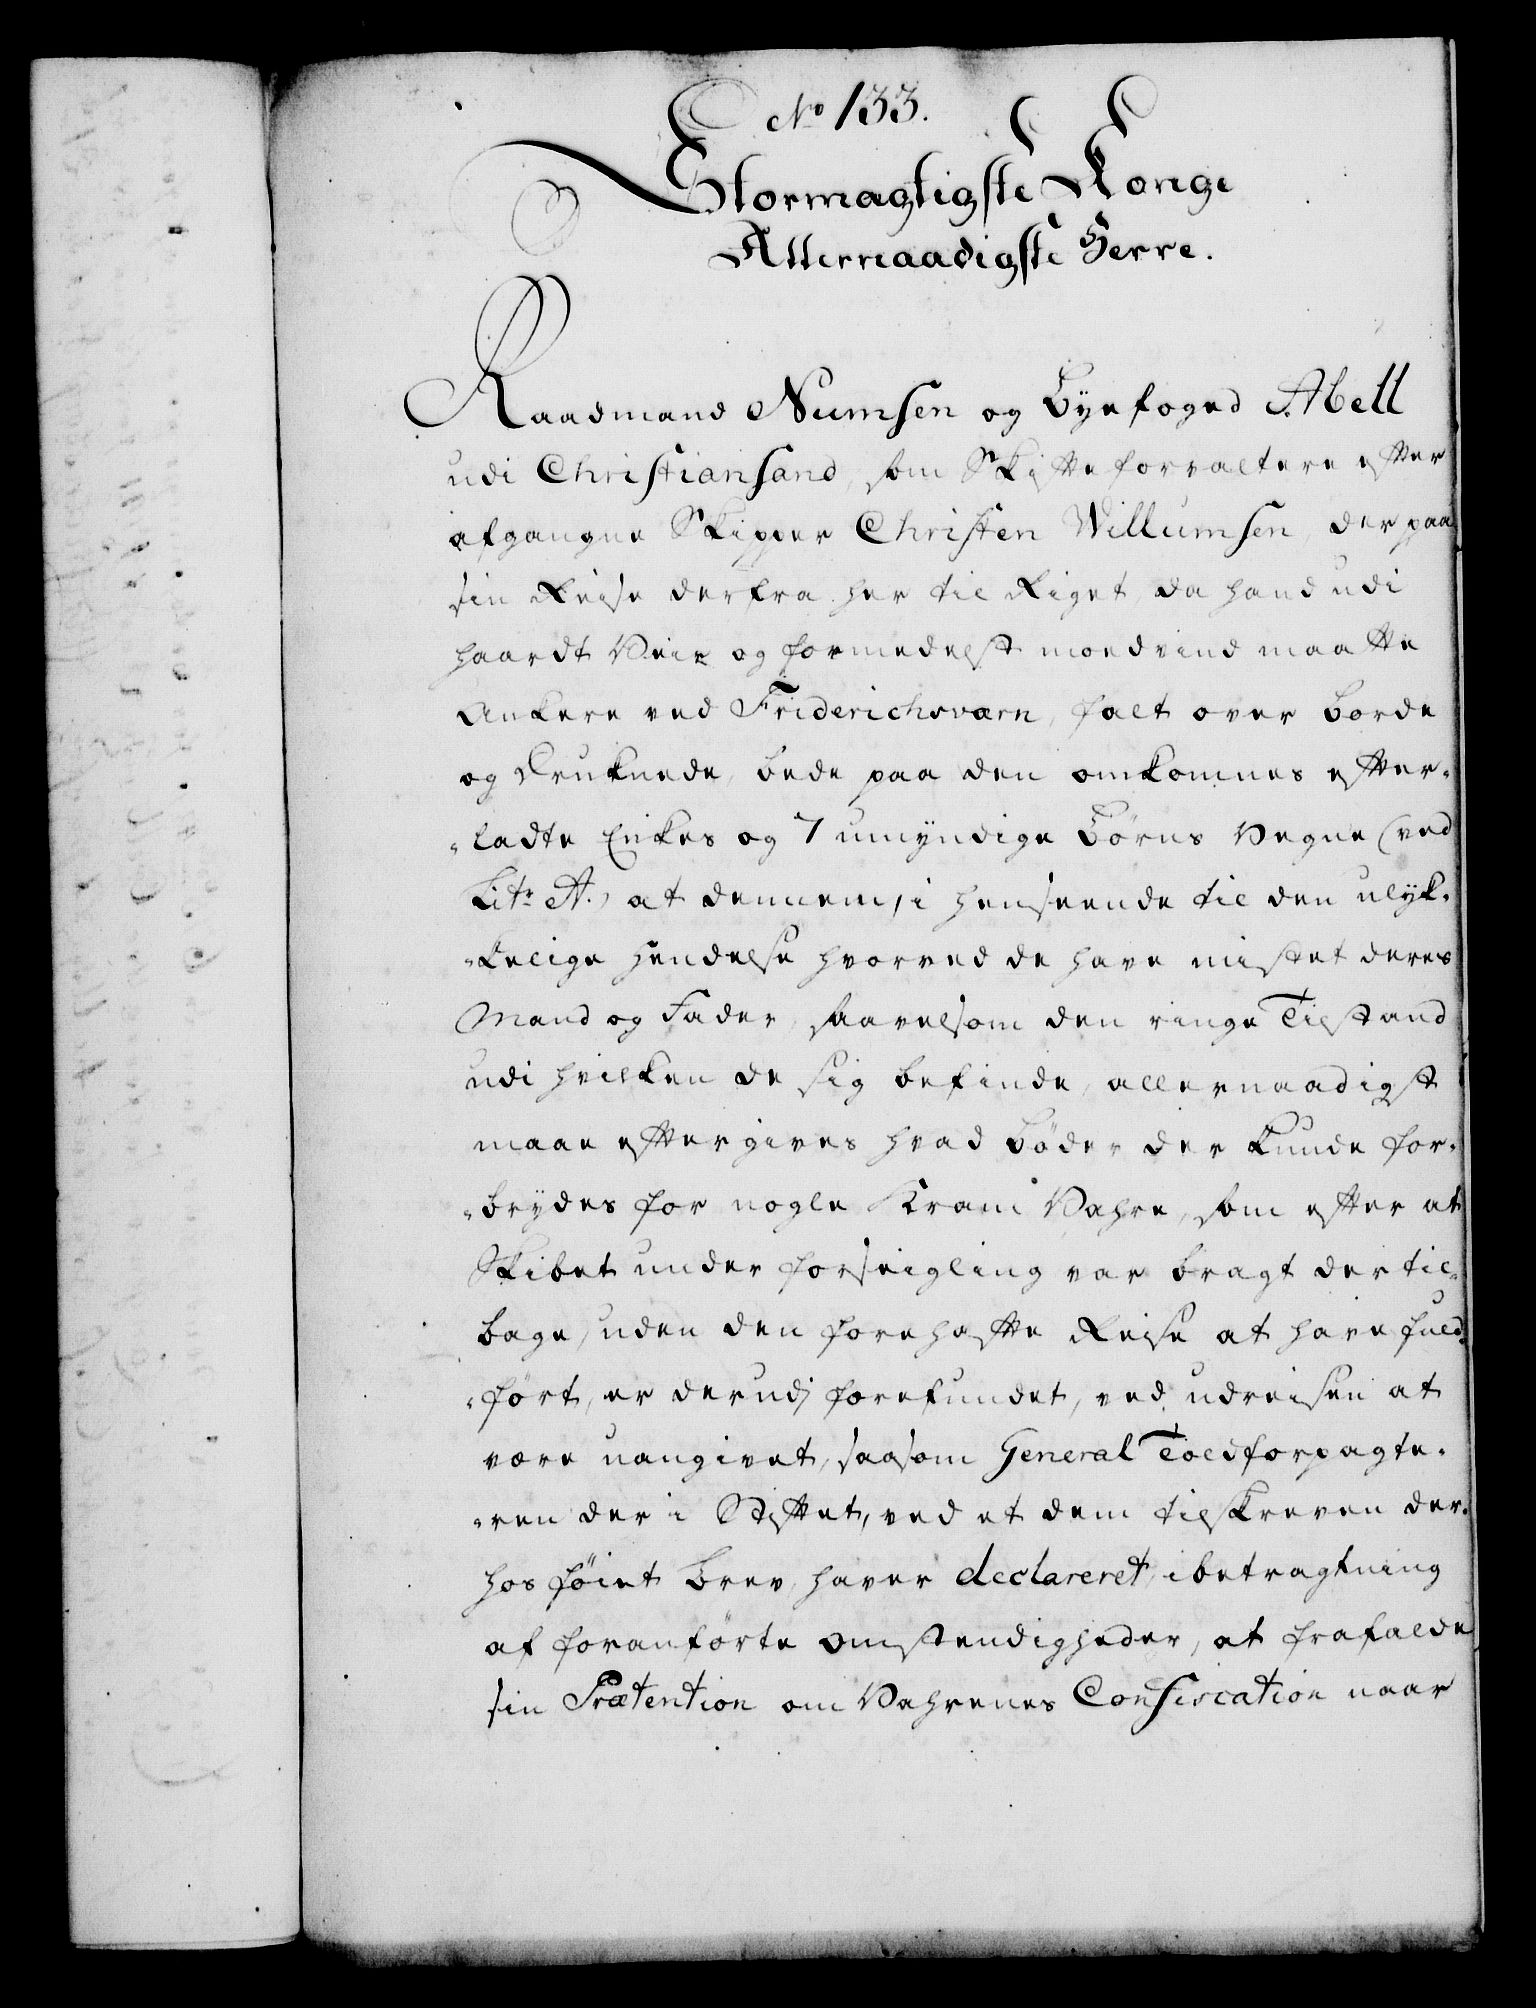 No 133.
Stormagtigste Konge
Allernaadigste Herre.
Raadmand Numsen og Byefoged Abell
udi Christiansand, som Skifteforvaltere efter
afgangne Skipper Christen Willumsen, der paa
sin Reise derfra her til Riget, da hand udi
haardt Veir og formedelst moedvind maatte
Ankere ved Friderichsværn, falt over borde
og Druknede, bede paa den omkomnes efter-
-ladte Enkes og 7 umyndige Børns Vegne (ved
Litr A.) at dennem, i henseende til den ulyk-
-kelige hendelse hvorved de have mistet deres
Mand og Fader, saavelsom den ringe Tilstand
udi hvilken de sig befinde, allernaadigst
maae eftergives hvad Bøder der kunde for-
-brydes for nogle Kram Vahre, som efter at
Skibet under forseigling var bragt der til-
bage, uden den forehafte Reise at have fuld-
-ført, er derudj forefundet, ved udreisen at
være uangivet, saasom General Toldforpagte-
-ren der i Stiftet, ved et dem tilskreven der-
hos føiet brev, haver declareret, i betragtning
af foranførte omstendigheder, at frafalde
sin Prætention om Vahrenes Confiscation naar